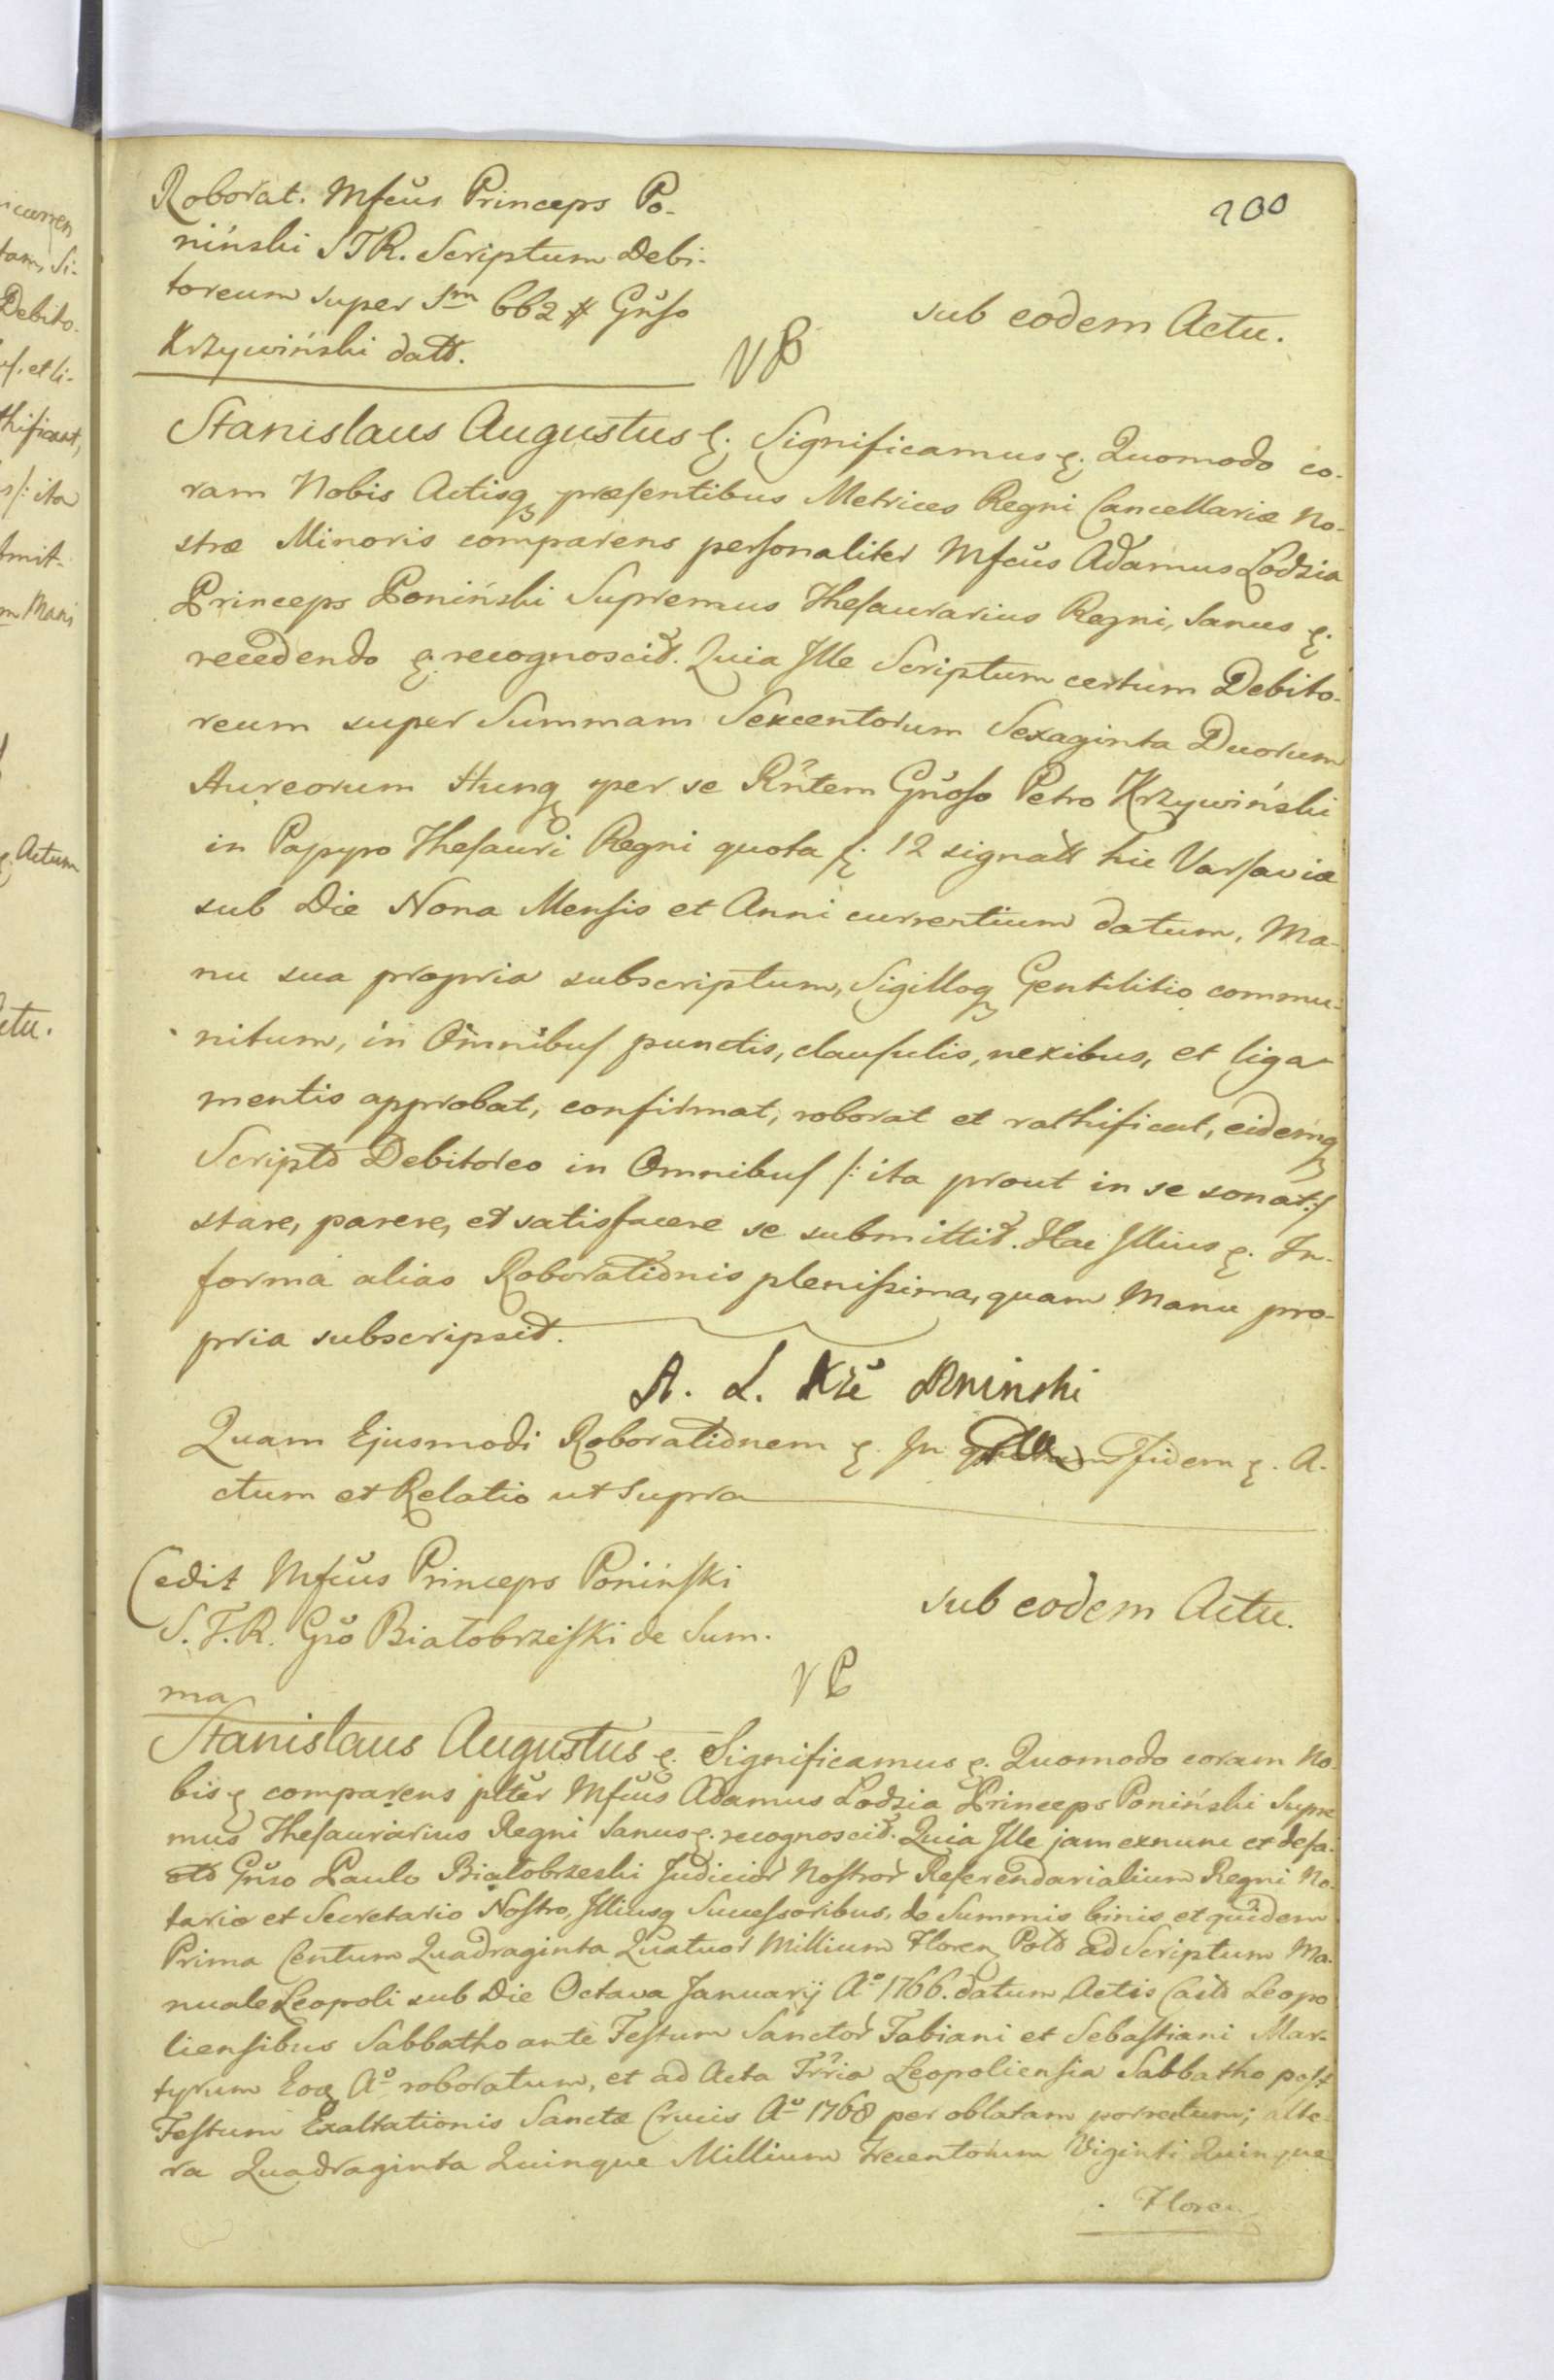 200
Roborat. Mfcus Princeps Po-
niński STR. Scriptum Debi-
toreum super Sm 662 # Gnso
Krzywiński datt.
sub eodem Actu.
Stanislaus Augustus ę. Significamus ę. Quomodo co-
ram Nobis Actisq præsentibus Metrices Regni Cancellariæ No-
stræ Minoris comparens personaliter Mfcus Adamus Lodzia
Princeps Poniński Supremus Thesaurarius Regni, Sanus ę.
recedendo ę. recognoscit. Quia Ille Scriptum certum Debito-
reum super Summam Sexcentorum Sexaginta Duorum
Aureorum Hung per se Rntem Gnoso Petro Krzywiński
in Papyro Thesauri Regni quota f. 12 signatt hic Varsaviæ
sub Die Nona Mensis et Anni currentium datum, Ma-
nu sua propria subscriptum, Sigilloq Gentilitio commu-
nitum, in Omnibus punctis, clausulis, nexibus, et liga-
mentis approbat, confirmat, roborat et rathificat, eidemq
Scripto Debitoreo in Omnibus /: ita prout in se sonat :/
stare, parere, et satisfacere se submittit. Hac Illius ę. In-
forma alias Roborationis plenissima, quam Manu pro-
pria subscripsit.
A. L. Xże Poninski
Quam Ejusmodi Roborationem ę. In fidem ę. A-
ctum et Relatio ut supra
Cedit Mfcus Princeps Poninski
S.T.R. Gso Białobrzeski de Sum-
ma
sub eodem Actu.
Stanislaus Augustus ę. Significamus ę. Quomodo coram No-
bis ę comparens plter Mfcus Adamus Lodzia Princeps Poniński Supre
mus Thesaurarius Regni Sanus ę. recognoscit. Quia Ille jam exnunc et defa-
cto Gnso Paulo Białobrzeski Judicior Nostror Referendarialium Regni No-
tario et Secretario Nostro, Illiusq Successoribus, de Summis binis et quidem
Prima Centum Quadraginta Quatuor Millium Floren Polo ad Scriptum Ma-
nuale Leopoli sub Die Octava Januarij Ao 1766. datum Actis Casts Leopo
liensibus Sabbatho ante Festum Sanctor Fabiani et Sebastiani Mar-
tyrum Eoq Ao roboratum, et ad Acta Trria Leopoliensia Sabbatho post
Festum Exaltationis Sanctæ Crucis Ao 1768 per oblatam porrectum; alte-
ra Quadraginta Quinque Millium Trecentorum Viginti Quinque
Floren